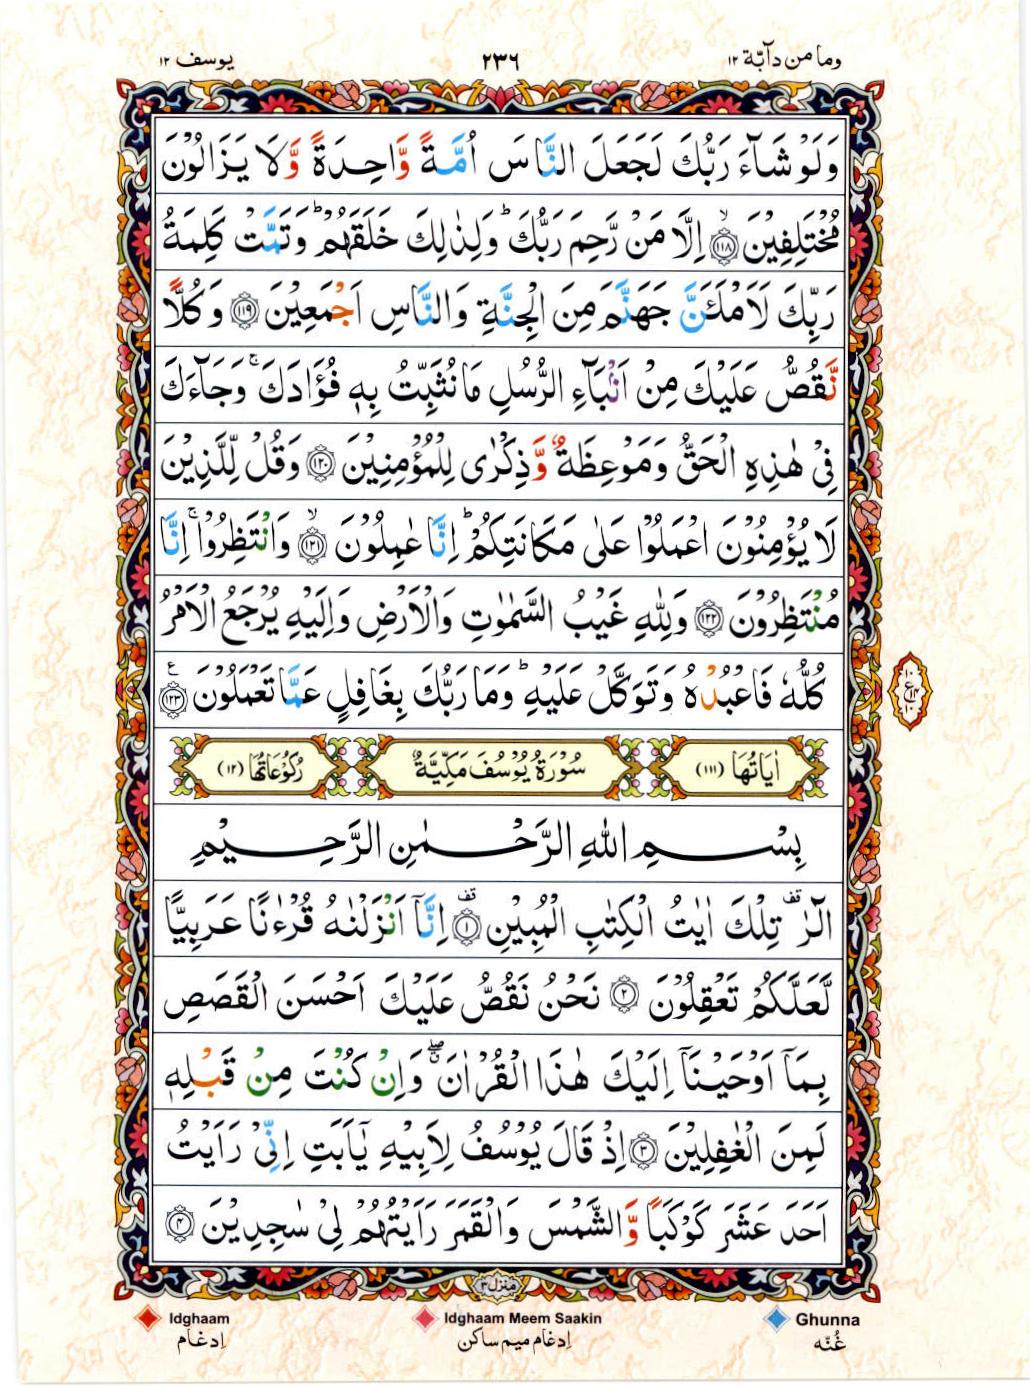 وما من دآبّة ١٢
٢٣٦
یوسف ١٢
وَلَوْ شَآءَ رَبُّكَ لَجَعَلَ النَّاسَ اُمَّةً وَّاحِدَةً وَّلَا يَزَالُوْنَ
مُخْتَلِفِيْنَ ۙ﴿۱۱۸﴾ اِلَّا مَنْ رَّحِمَ رَبُّكَ ؕ وَلِذٰلِكَ خَلَقَهُمْ ؕ وَتَمَّتْ كَلِمَةُ
رَبِّكَ لَاَمْلَـَٔنَّ جَهَنَّمَ مِنَ الْجِنَّةِ وَالنَّاسِ اَجْمَعِيْنَ ﴿۱۱۹﴾ وَكُلًّا
نَّقُصُّ عَلَيْكَ مِنْ اَنْۢبَآءِ الرُّسُلِ مَا نُثَبِّتُ بِهٖ فُؤَادَكَ ۚ وَجَآءَكَ
فِيْ هٰذِهِ الْحَقُّ وَمَوْعِظَةٌ وَّذِكْرٰى لِلْمُؤْمِنِيْنَ ﴿۱۲۰﴾ وَقُلْ لِّلَّذِيْنَ
لَا يُؤْمِنُوْنَ اعْمَلُوْا عَلٰى مَكَانَتِكُمْ ؕ اِنَّا عٰمِلُوْنَ ۙ﴿۱۲۱﴾ وَانْتَظِرُوْا ۚ اِنَّا
مُنْتَظِرُوْنَ ﴿۱۲۲﴾ وَلِلّٰهِ غَيْبُ السَّمٰوٰتِ وَالْاَرْضِ وَاِلَيْهِ يُرْجَعُ الْاَمْرُ
كُلُّهٗ فَاعْبُدْهُ وَتَوَكَّلْ عَلَيْهِ ؕ وَمَا رَبُّكَ بِغَافِلٍ عَمَّا تَعْمَلُوْنَ ﴿۱۲۳﴾ ع
اٰيَاتُهَا (۱۱۱)
سُوْرَةُ يُوْسُفَ مَكِّيَّةٌ
رُكُوْعَاتُهَا (۱۲)
بِسْمِ اللّٰهِ الرَّحْمٰنِ الرَّحِيْمِ
الٓرٰ ۟ تِلْكَ اٰيٰتُ الْكِتٰبِ الْمُبِيْنِ ﴿۱﴾ۣ اِنَّآ اَنْزَلْنٰهُ قُرْءٰنًا عَرَبِيًّا
لَّعَلَّكُمْ تَعْقِلُوْنَ ﴿۲﴾ نَحْنُ نَقُصُّ عَلَيْكَ اَحْسَنَ الْقَصَصِ
بِمَآ اَوْحَيْنَآ اِلَيْكَ هٰذَا الْقُرْاٰنَ ۖ وَاِنْ كُنْتَ مِنْ قَبْلِهٖ
لَمِنَ الْغٰفِلِيْنَ ﴿۳﴾ اِذْ قَالَ يُوْسُفُ لِاَبِيْهِ يٰٓاَبَتِ اِنِّيْ رَاَيْتُ
اَحَدَ عَشَرَ كَوْكَبًا وَّالشَّمْسَ وَالْقَمَرَ رَاَيْتُهُمْ لِيْ سٰجِدِيْنَ ﴿۴﴾
منزل ٣
Idghaam
Idghaam Meem Saakin
Ghunna
إدغام
إدغام ميم ساكن
غُنّه